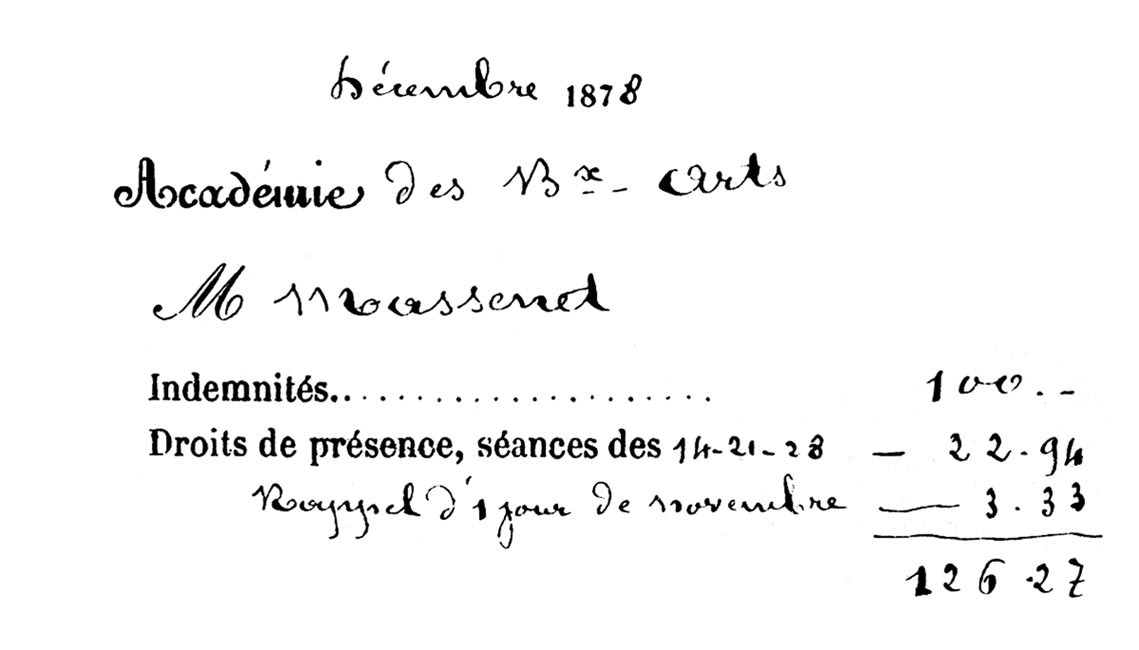 Décembre 1878
Académie des Bx- Arts
M Massenet
Indemnités....................... 100.-
Droits de présence, séances des 14-21-28 — 22.94
Rappel d'1 jour de novembre — 3.33
126.27